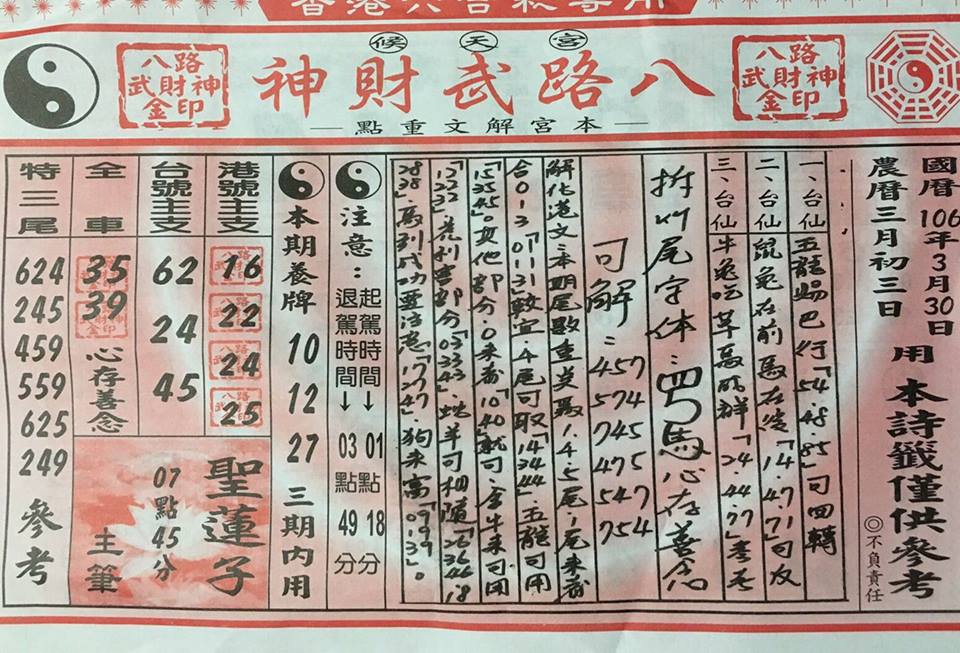 香港六合彩專用
候天宮
八路武財神
八路
武財神
金印
八路
武財神
金印
本宮解文重點
國曆106年3月30日
農曆三月初三日
用
本詩籤僅供參考
◎不負責任
一、台仙
五龍賜巴行「54.48.85」可四轉
二、台仙
鼠兔在前馬在後「14.47.71」可友
三、台仙
牛兔吃草馬成群「24.44.77」
拆八尾字体：四馬心存善念
可解：457 574 745 475 547 754
解化港文：本期尾數重點為1.4.5尾
合0.1.3「01.13」
4尾可取「14.24.44」五龍可用
「15.35.45」
0來「10.40」就可
「03.33.43」蛇羊可相隨「26.36.46.18
28.38」馬到成功要注意「17.27.47」狗來
注意：
起駕時間→01點18分
退駕時間→03點49分
本期養牌
10
12
27
三期內用
港號主支
16
22
24
25
台號主支
62
24
45
全車
35
39
心存善念
特三尾
624
245
459
559
625
249
參考
聖蓮子
07點45分
主筆